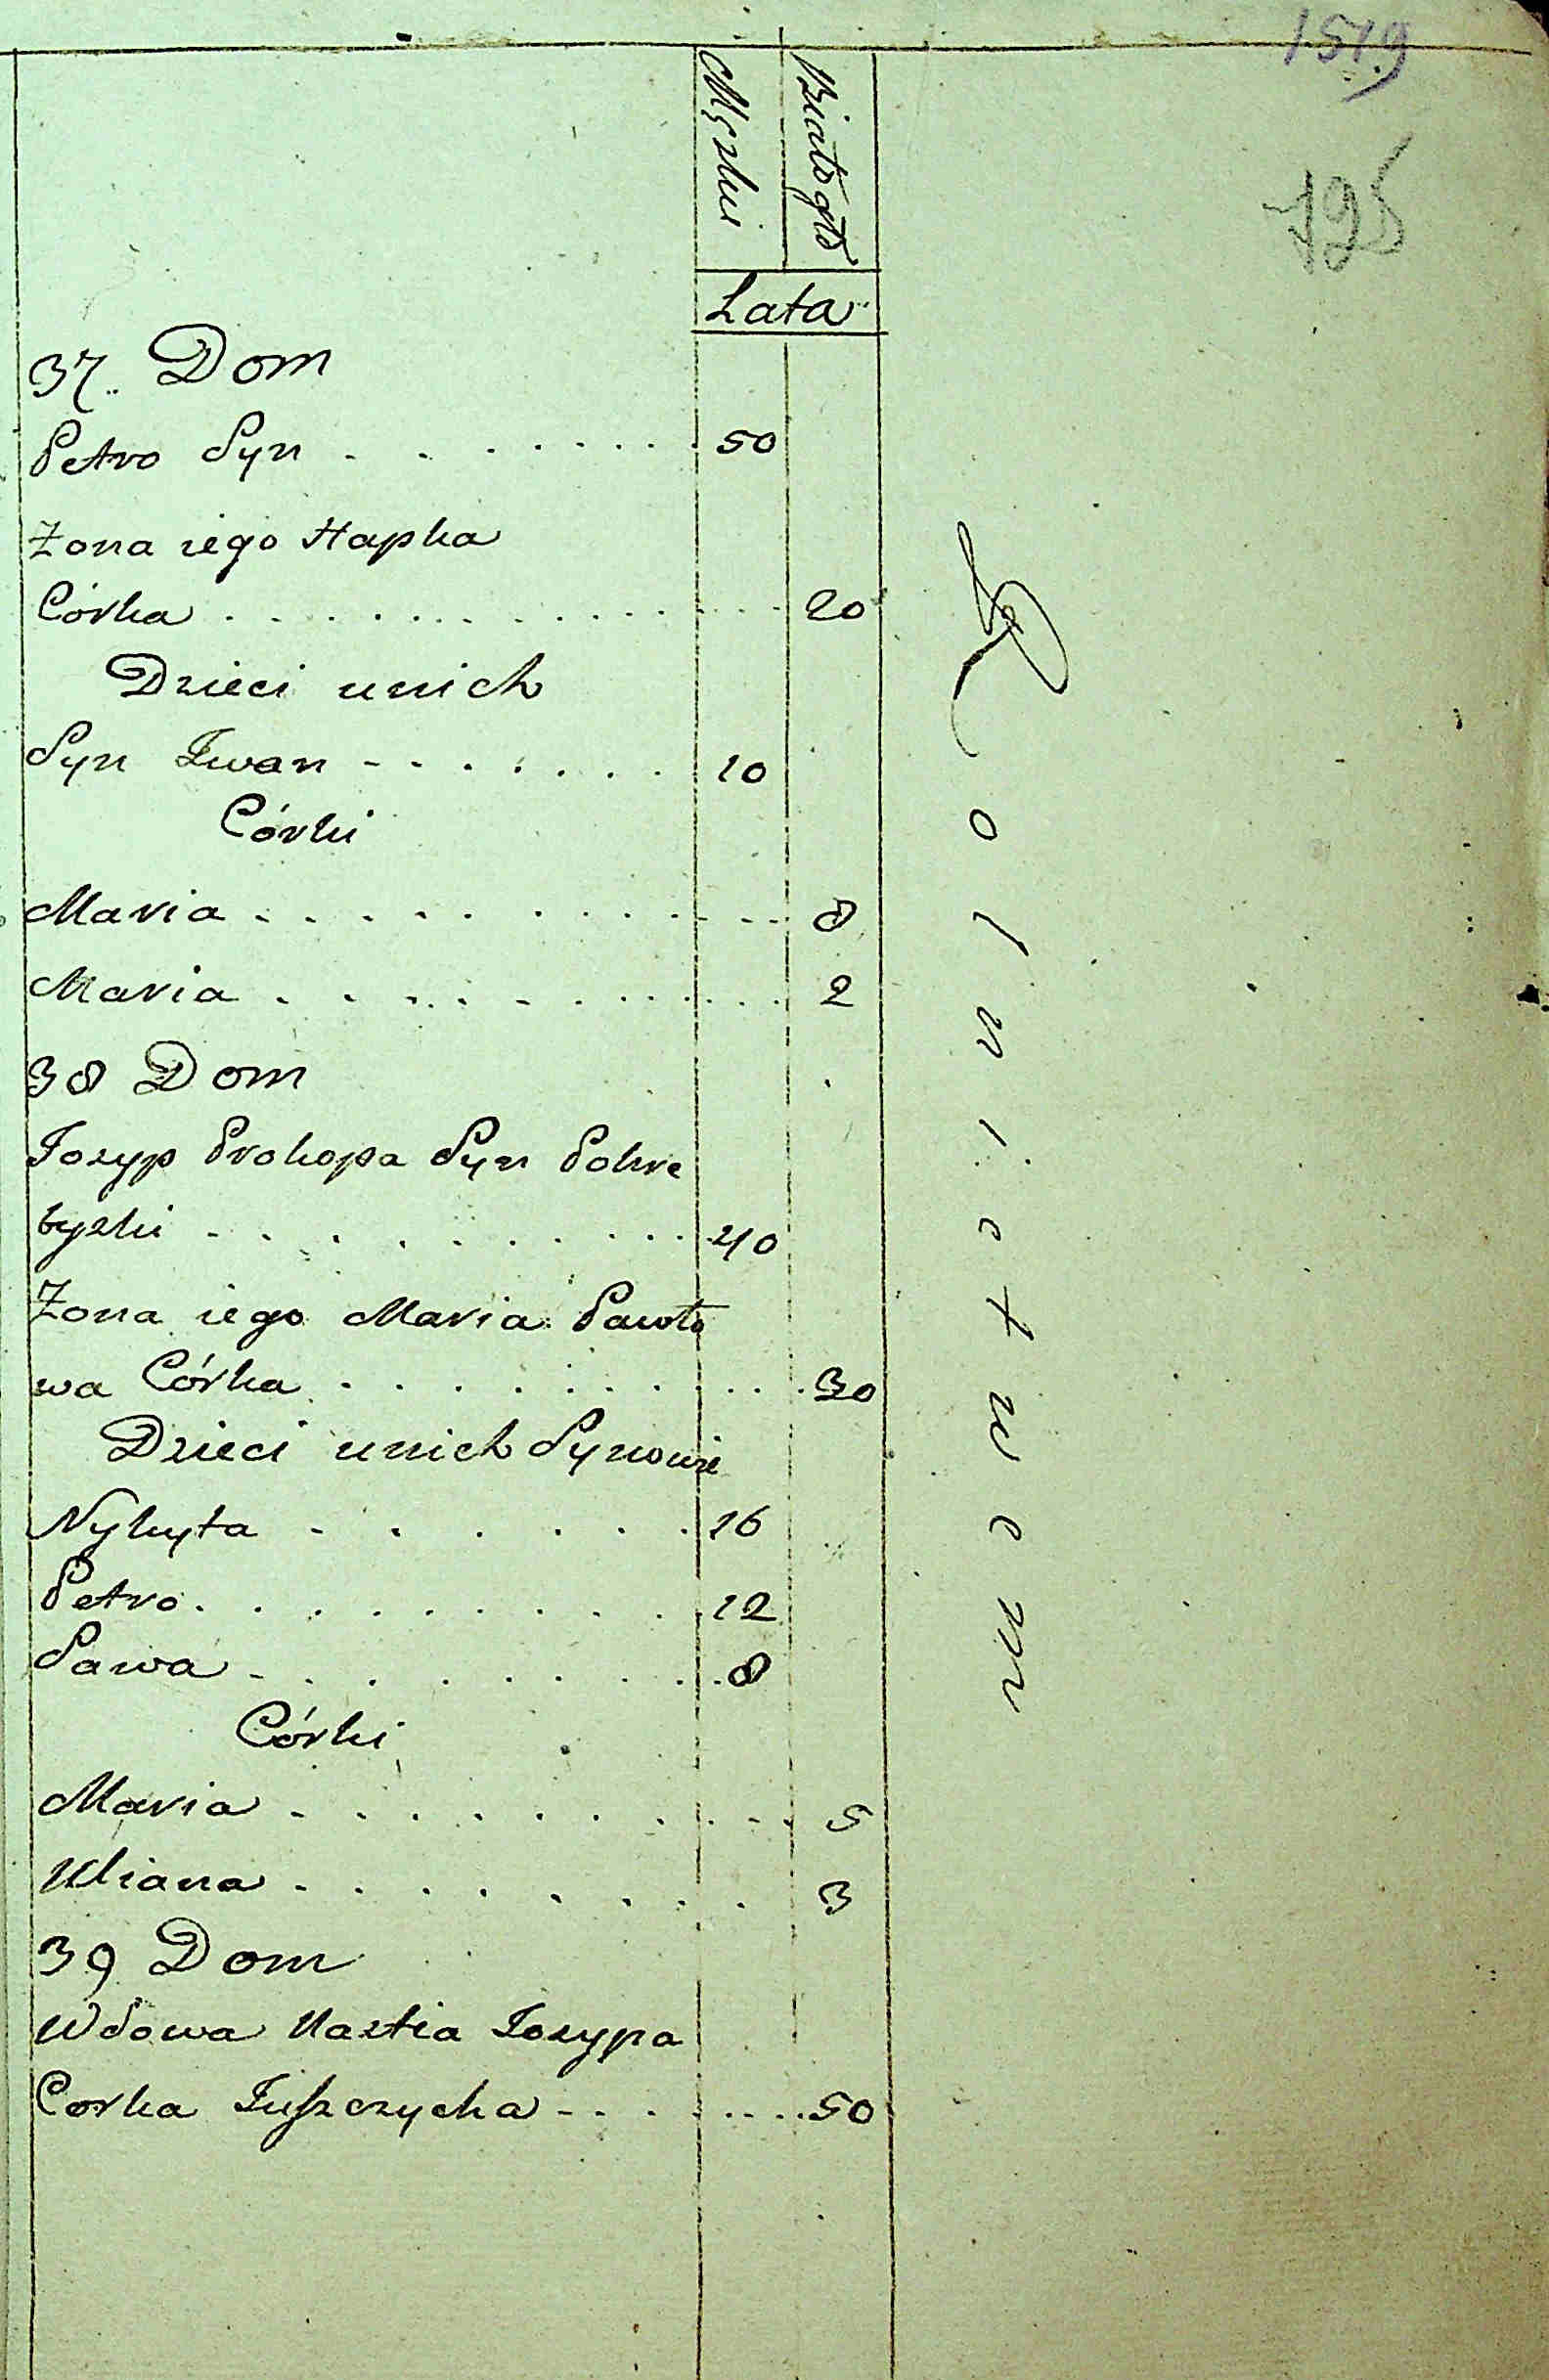 1519
725
Męzkie
Białogło
Lata
37. Dom
Petro Syn 50
Zona iego Hapka
Córka 20
Dzieci unich
Syn Iwan 10
Córki
Maria 8
Maria 2
38 Dom
Iozyp Prokopa Syn Pohre
byzki 40
Zona iego Maria Pawło
wa Córka 30
Dzieci unich Synowie
Nykyta 16
Petro 12
Sawa 8
Córki
Maria 5
Uliana 3
39 Dom
Wdowa Nastia Iozypa
Corka Juszczycha 50